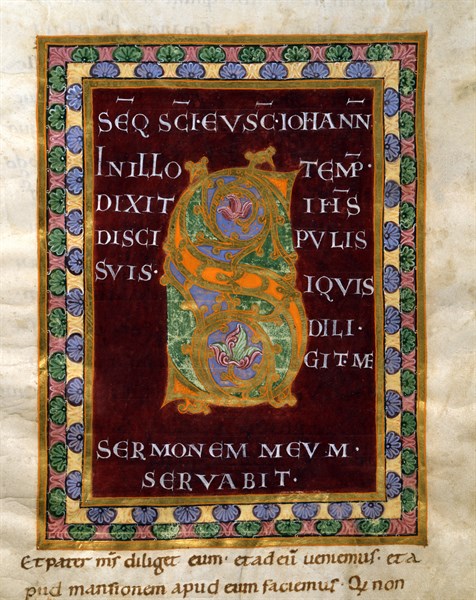 SEQ̄ SC̄I·EVSC̄·IOHANN̄
IN ILLO TEMP̄·
DIXIT IH̄S
DISCI PVLIS
SVIS· SIQVIS
DILI·
GIT ME
SERMONEM MEVM·
SERVABIT·
Et pater m̄s diliget eum· et ad eū veniemus· et a
pud mansionem apud eum faciemus· Q̄ non